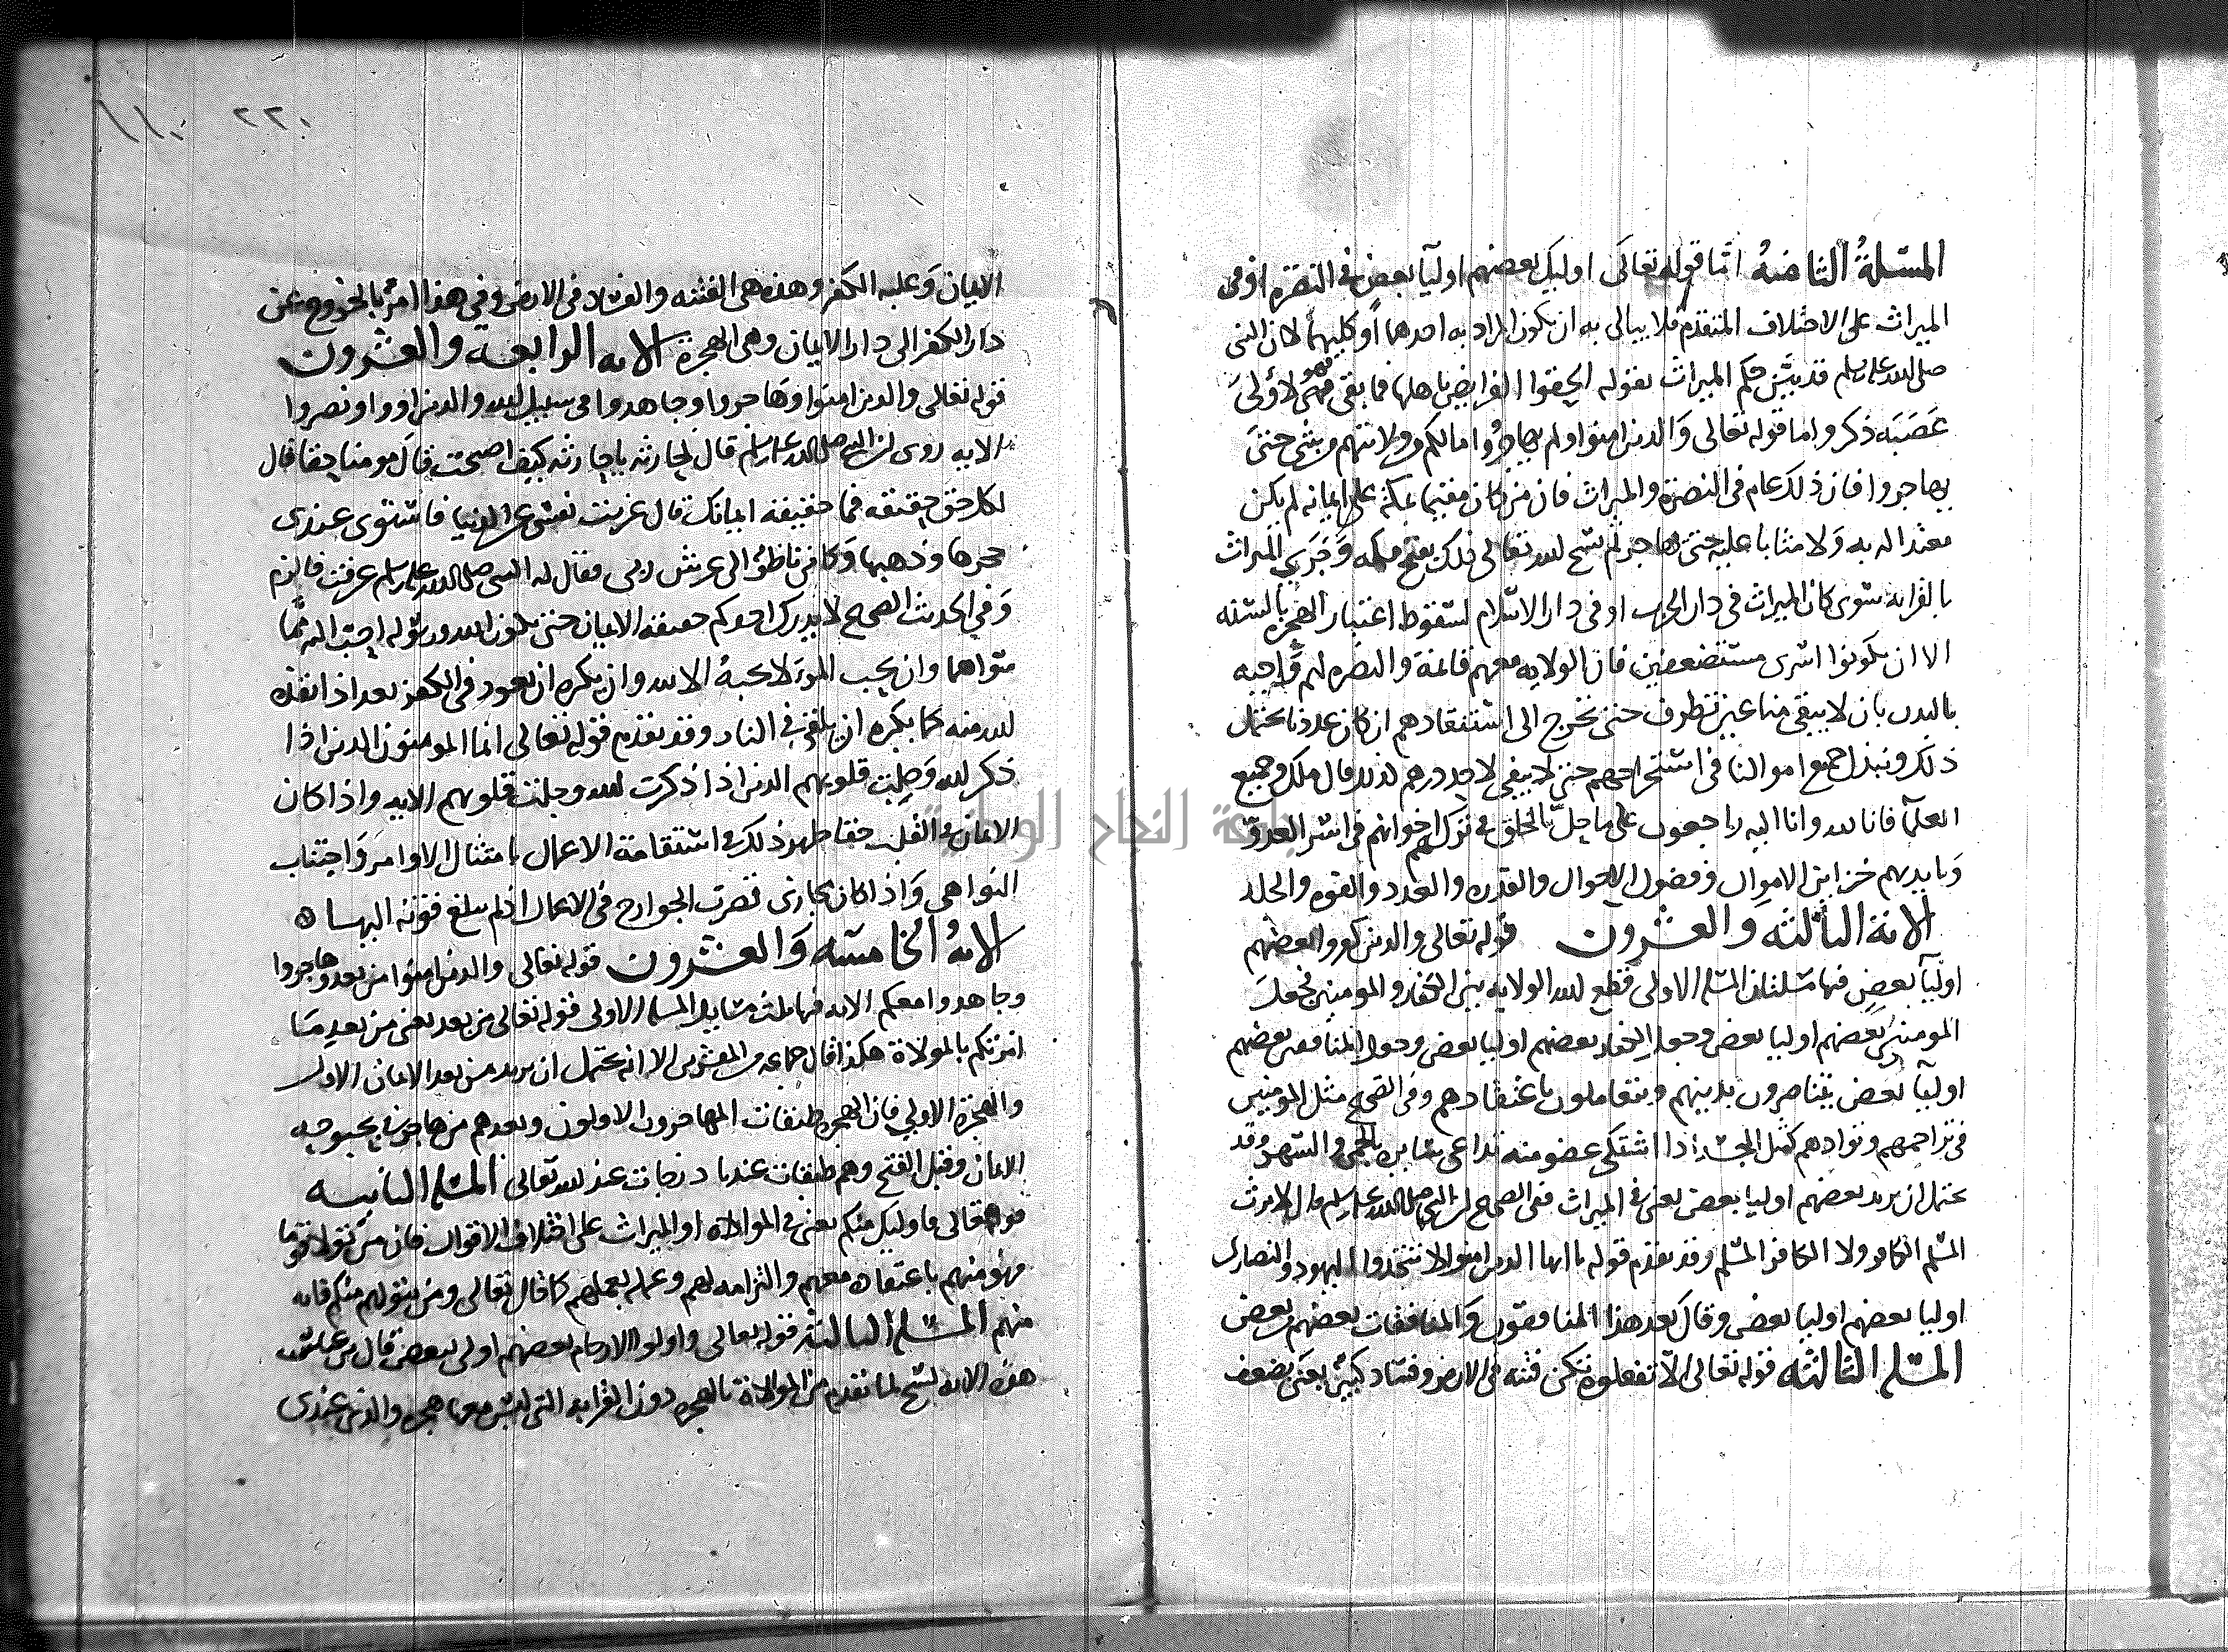 المسئلة الثامنة اما قوله تعالى اوليك بعضهم اوليآ بعض في النصرة او في
الميراث على الاختلاف المتقدم فلا يبالى به ان يكون المراد به احدهما او كليهما لان النبى
صلى الله عليه وسلم قد بيّن حكم الميراث بقوله الحقوا الفرايض باهلها فما بقى فهو لاولى
عَصَبَه ذكر واما قوله تعالى وَالدين امنوا ولم يهاجروا مالكم من ولايتهم من شى حتى
يهاجروا فان ذلك عام فى النصرة والميراث فان من كان مقيما بمكة على ايمانه لم يكن
معتدا له به وَلا مثابا عليه حتى يهاجر ثم نسخ الله تعالى ذلك بفتح مكه وَجَرى الميراث
بالقرابه سوى كان الميراث فى دار الحرب او فى دار الاسلام لسقوط اعتبار الهجره بالسنه
الا ان يكونوا اسرى مستضعفين فان الولايه معهم قائمة والنصره لهم وَاجبه
بالبدن بان لا يبقى منا عين تطرف حتى نخرج الى استنقاذهم ان كان عددنا يحتمل
ذلك ونبذل جميع اموالنا فى استخراجهم حتى لا يبقى لاحد درهم كذلك قال ملك وجميع
العلمآ فانا لله وانا اليه راجعون على ما حلّ بالخلق فى تركهم اخوانهم فى اسر العدوّ
وَبايديهم خزاين الاموال وفضول الاحوال والقدره والعدد والقوه والجلد
الاية الثالثة والعشرون قوله تعالى والدين كفروا بعضهم
اوليآ بعض فيها مسلتان المسلة الاولى قطع الله الولايه بين الكفار والمومنين فجعل
المومنين بعضهم اوليا بعض وجعل الكفار بعضهم اوليا بعض وجعل المنافقين بعضهم
اوليآ بعض يتناصرون بدينهم ويتعاملون باعتقادهم وفى الصحيح مثل المومنين
فى تراحمهم وتوادهم كمثل الجسد اذا اشتكى عضو منه تداعى سايره بالحمى والسهر وقد
يحتمل ان يريد بعضهم اوليا بعض يعنى فى الميراث ففى الصحيح ان النبي صلى الله عليه وسلم قال لا يرث
المسلم الكافر ولا الكافر المسلم وقد تقدم قوله يا ايها الدين امنوا لا تتخذوا اليهود والنصارى
اوليا بعضهم اوليا بعض وقال بعد هذا المنافقون وَالمنافقات بعضهم من بعض
المسلة الثالثه قوله تعالى الا تفعلوه تكن فتنه فى الارض وفساد كبير يعنى بضعف
٢٢٠
الايمان وَغلبه الكفر وهذه هى الفتنه والفساد فى الارض وفى هذا امرٌ بالخروج عن
دار الكفر الى دار الايمان وهى الهجرة الايه الرابعة والعشرون
قوله تعالى والدين امنوا وهَاجروا وجاهدوا فى سبيل الله والدين اووا ونصروا
الايه روى ان النبي صلى الله عليه وسلم قال لحارثه ياحارثه كيف اصبحت قال مومنا حقا قال
لكل حق حقيقه فما حقيقة ايمانك قال عزبت نفسى عن الدنيا فاستوى عندى
حجرها وذهبها وَكانى ناظرٌ الى عرش ربى فقال له النبى صلى الله عليه وسلم عرفت فالزم
وَفى الحديث الصحيح لا يدرك احدكم حقيقه الايمان حتى يكون الله ورسوله احبّ اليه مما
سواهما وان يحب المرء لا يحبهُ الا لله وان يكره ان يعود فى الكفر بعد اذ انقذه
الله منه كما يكره ان يلقى فى النار وقد تقدم قوله تعالى انما المومنون الدين اذا
ذكر الله وَجلت قلوبهم الدين اذا ذكرت الله وجلت قلوبهم الايه واذا كان
الايمان فى القلب حقا ظهر ذلك فى استقامة الاعمال بامتثال الاوامر وَاجتناب
النواهى وَاذا كان مجازى قصرت الجوارح فى الاعمال اذ لم تبلغ قوته اليها ه
الايهُ الخامسه وَالعشرون قوله تعالى والدين امنوا من بعد وهاجروا
وجاهدوا معكم الايه فيها ثلث مسايل المسلة الاولى قوله تعالى من بعد يعنى من بعد مَا
امرتكم بالموالاة هكذا قال جماعه من المفسرين الا انه يحتمل ان يريد من بعد الايمان الاول
والهجرة الاولي فان الهجره طبقات المهاجرون الاولون وبعدهم من هاجر فى بحبوحه
الايمان وقبل الفتح وهم طبقات عندنا درجات عند الله تعالى المسلة الثانيه
قوله تعالى فاوليك منكم يعنى فى الموالاة او الميراث على اختلاف الاقوال فان من تولا قوما
فهو منهم باعتقاده معهم والتزامه لهم وعمله بعملهم كما قال تعالى ومن يتولهم منكم فانه
منهم المسلة الثالثة قوله تعالى واولوا الارحام بعضهم اولى ببعض قال
هذه الايه نسخ لما تقدم من الموالاة بالهجره دون القرابه التى ليس معها هجره والذى عندى